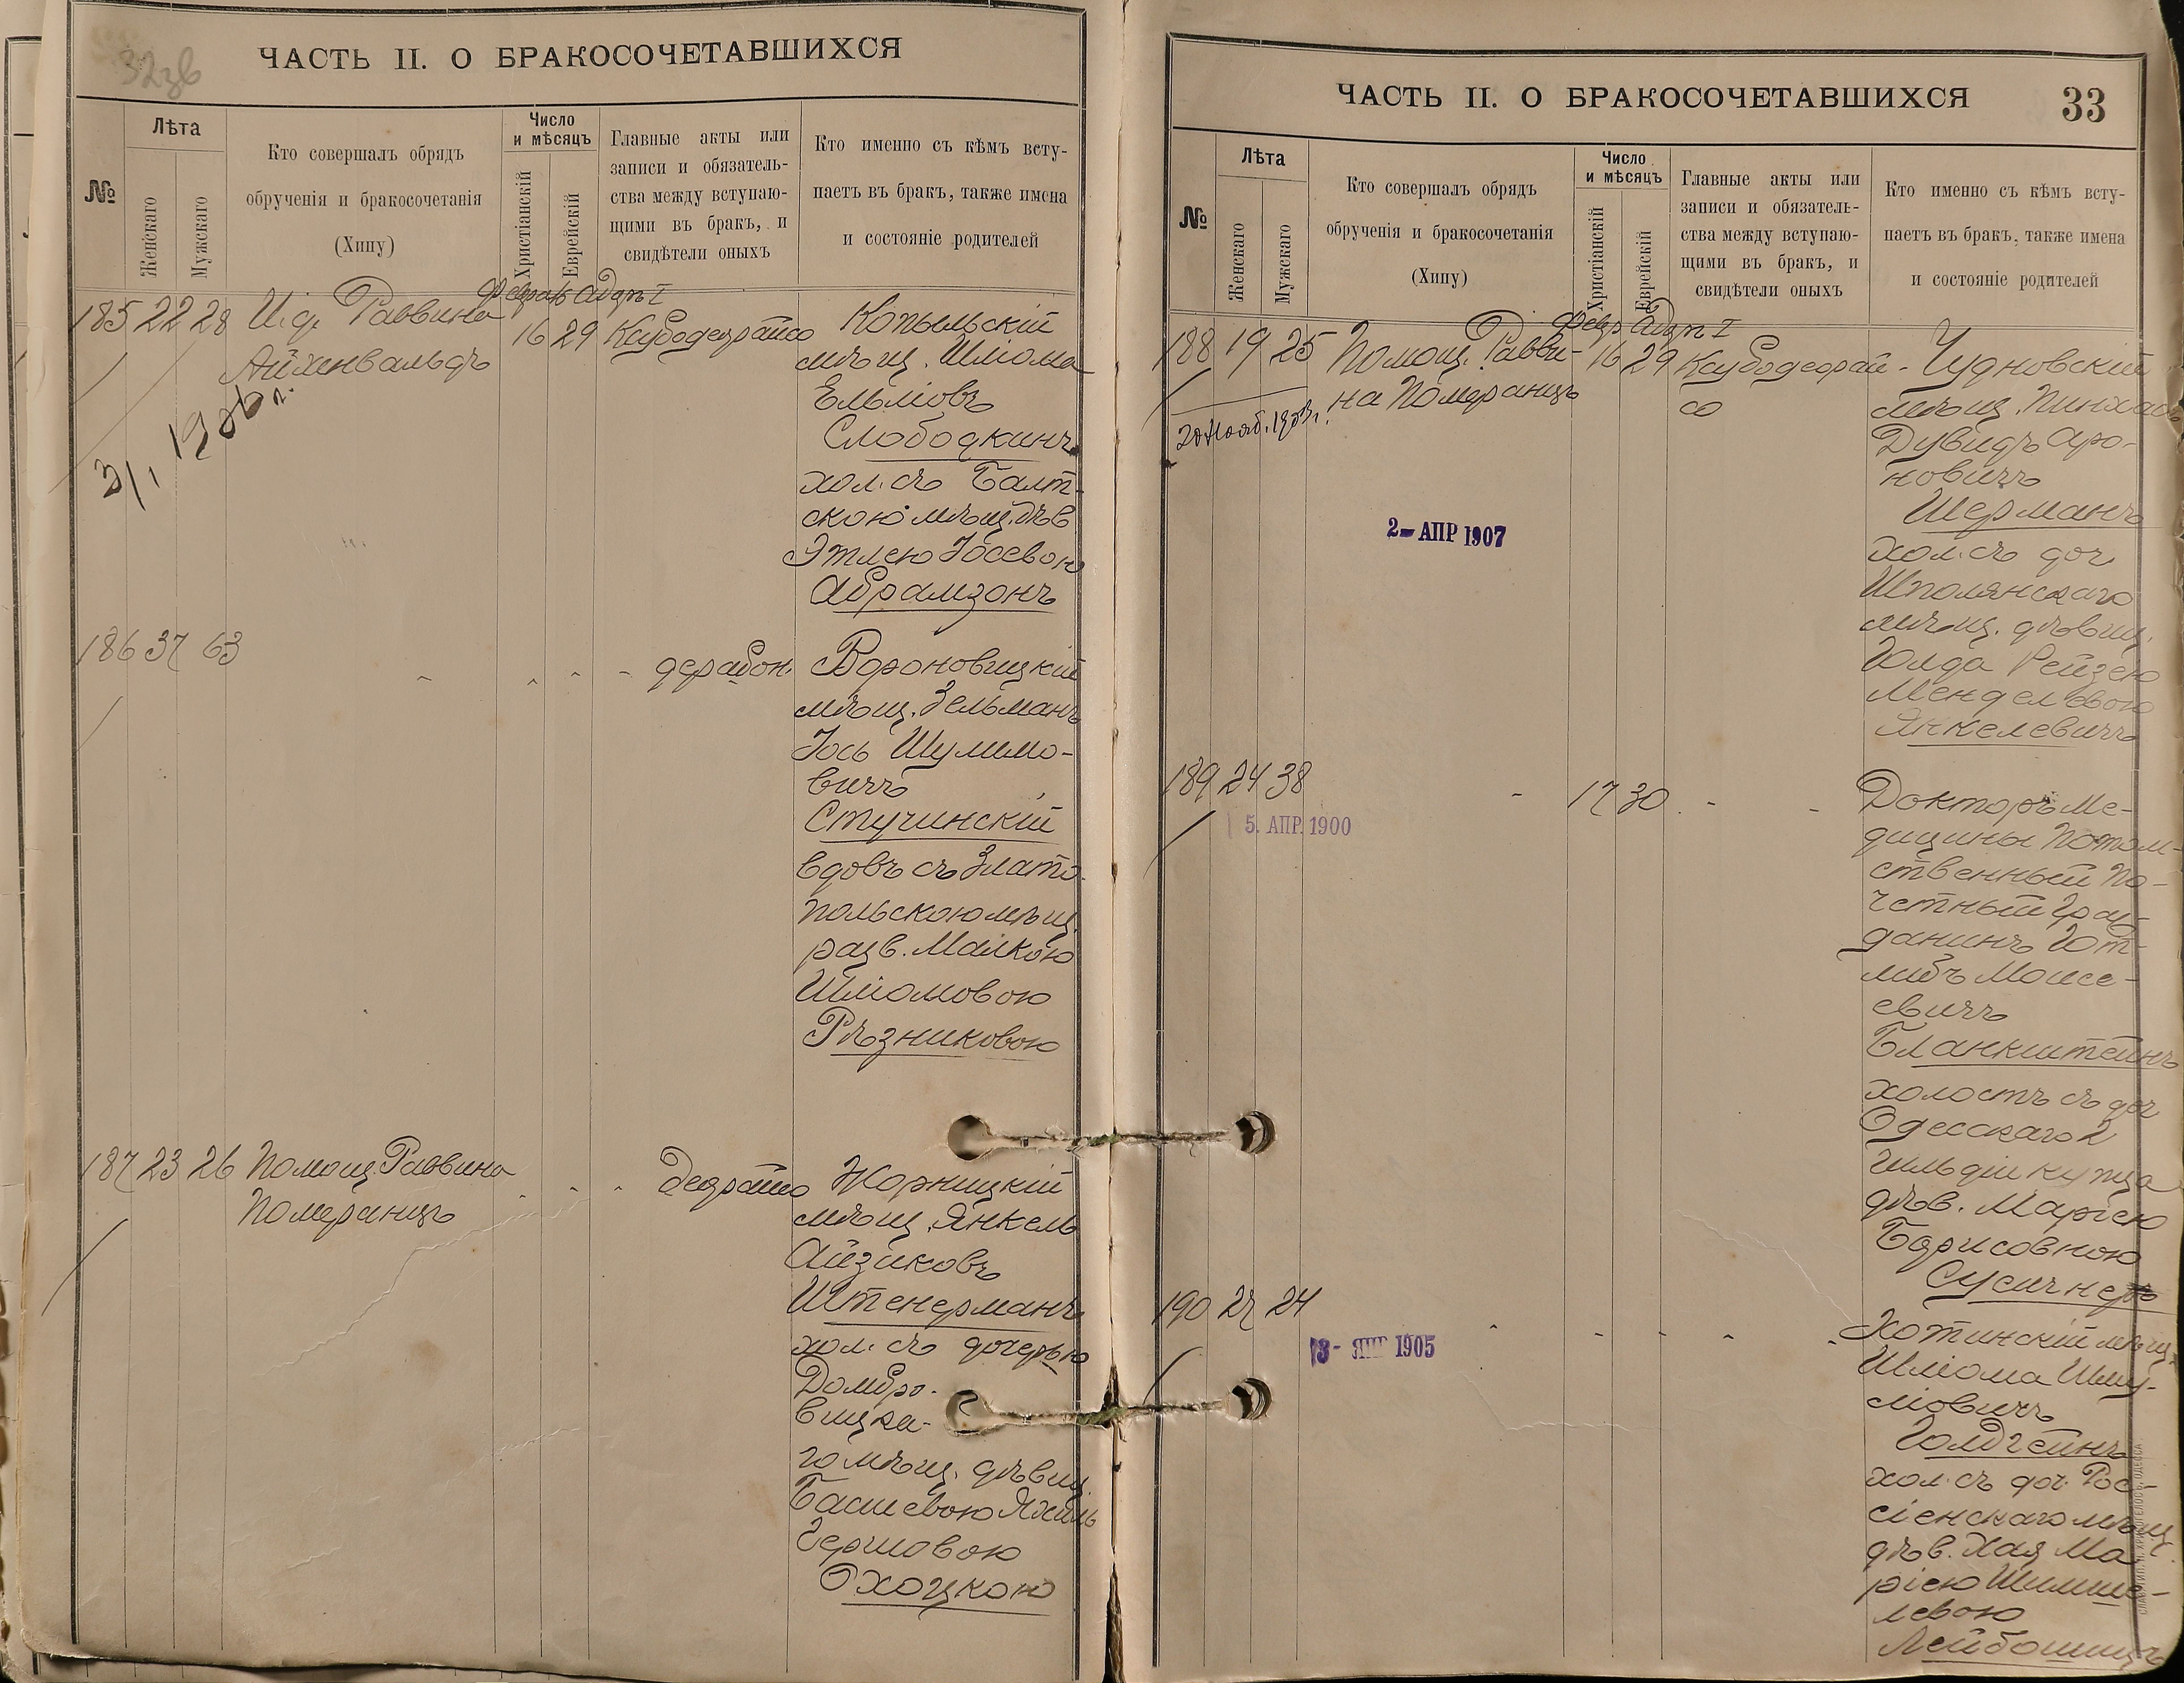 32зв
ЧАСТЬ II. О БРАКОСОЧЕТАВШИХСЯ
№
Лѣта
Женскаго
Мужскаго
Кто совершалъ обрядъ
обрученія и бракосочетанія
(Хипу)
Число
и мѣсяцъ
Христіанскій
Еврейскій
Главные акты или
записи и обязатель-
ства между вступаю-
щими въ бракъ, и
свидѣтели оныхъ
Кто именно съ кѣмъ всту-
паетъ въ бракъ, также имена
и состояніе родителей
Февраль Адаръ I
185 22 28 И. д. Раввина
Айхенвальдъ
16 29 Ксубодеорайсо
Копыльскій
мѣщ. Шліома
Ельліовъ
Слободкинъ
хол. съ Балт-
скою мѣщ. дѣв
Этлею Іосевою
Абрамзонъ
3/1 1906 г.
186 37 63
дерабон.
Вороновицкій
мѣщ. Зельманъ
Іось Шулимо-
вичъ
Стучинскій
вдовъ съ Злато-
польскою мѣщ.
разв. Малкою
Шліомовою
Рѣзниковою
187 23 26 Помощ. Раввина
Померанцъ
Деорайсо
Жорницкій
мѣщ. Янкель
Айзиковъ
Штенерманъ
хол. съ дочерью
Домбро-
вицка-
го мѣщ. дѣвиц.
Басшевою Яхиль
Гершовою
Охоцкою
ЧАСТЬ II. О БРАКОСОЧЕТАВШИХСЯ
33
№
Лѣта
Женскаго
Мужскаго
Кто совершалъ обрядъ
обрученія и бракосочетанія
(Хипу)
Число
и мѣсяцъ
Христіанскій
Еврейскій
Главные акты или
записи и обязатель-
ства между вступаю-
щими въ бракъ, и
свидѣтели оныхъ
Кто именно съ кѣмъ всту-
паетъ въ бракъ, также имена
и состояніе родителей
Февр. Адаръ I
188 19 25 Помощ. Равви-
на Померанцъ
16 29 Ксубодеорай-
со
Чудновскій
мѣщ. Пинхасъ
Дувидъ Аро-
новичъ
Шерманъ
хол. съ доч.
Шполянскаго
мѣщ. дѣвиц.
Голда Рейзею
Менделевою
Янкелевичъ
2- АПР 1907
189 24 38
17 30
5. АПР. 1900
Докторъ Ме-
дицины Потом-
ственный По-
четный Граж-
данинъ Гот-
либъ Моисе-
евичъ
Бланкштейнъ
холостъ съ доч
Одесскаго 2
гильдіи купца
дѣв. Маріею
Борисовною
190 27 24
3- ЯНВ 1905
Хотинскій мѣщ.
Шліома Шму-
ліовичъ
Голдгейнъ
хол. съ доч. Рос-
сіенскаго мѣщ.
дѣв. Хая Ма
ріею Шимше-
левою
Лейбошицъ